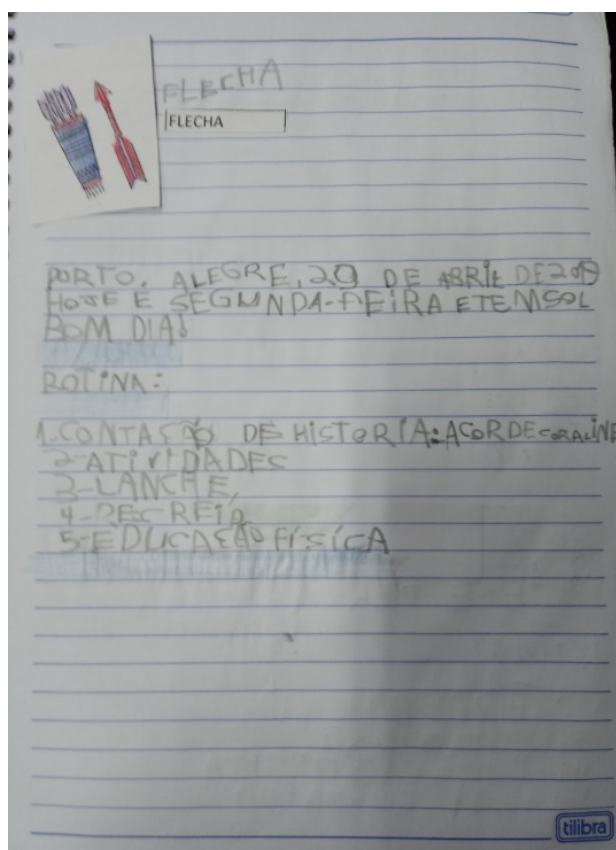 FLECHA
FLECHA
PORTO. ALEGRE, 29 DE ABRIL DE 2019
HOJE E SEGUNDA-FEIRA E TEM SOL
BOM DIA!
ROTINA:
1-CONTASÃO DE HISTORIA: A COR DE CORALINE
2-ATIVIDADES
3-LANCHE,
4-RECREIO
5-EDUCAÇÃO FÍSÍCA
tilibra